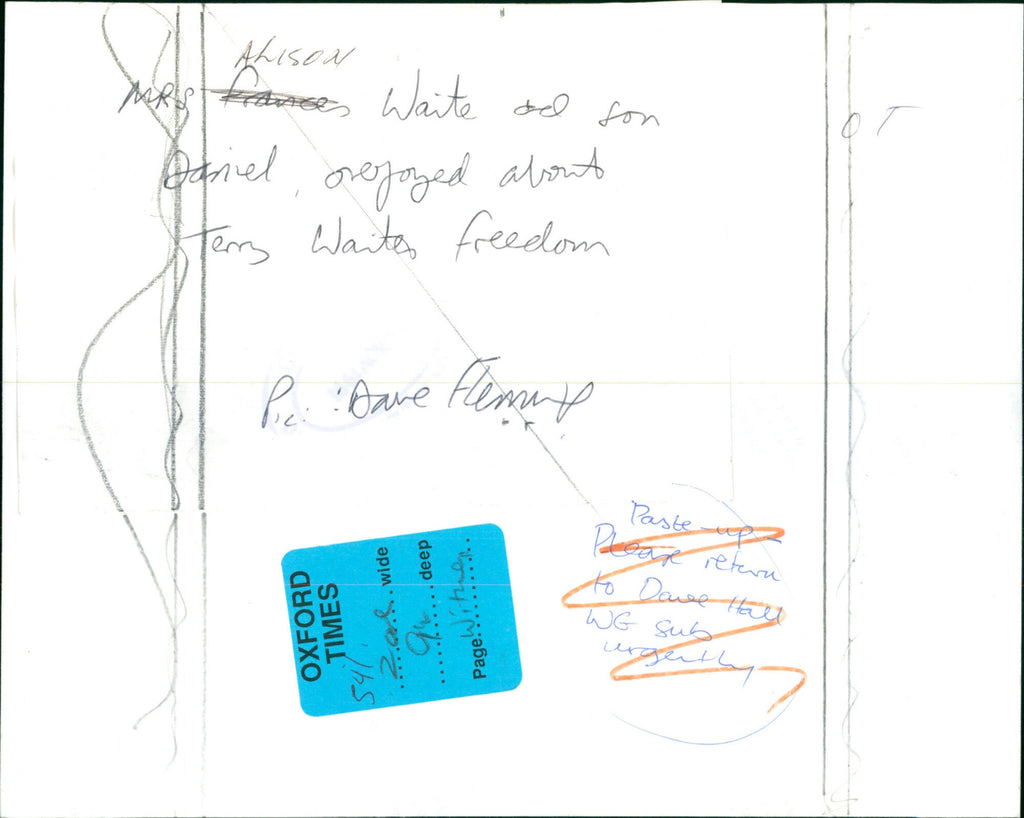 ALISON
MRS Frances Waite and son
O T
Daniel, overjoyed about
Terry Waites freedom
Pic: Dave Fleming
Paste-up
Please return
to Dave Hall
WG subs
urgently
OXFORD
TIMES
54%
2 col wide
deep
Page Witney